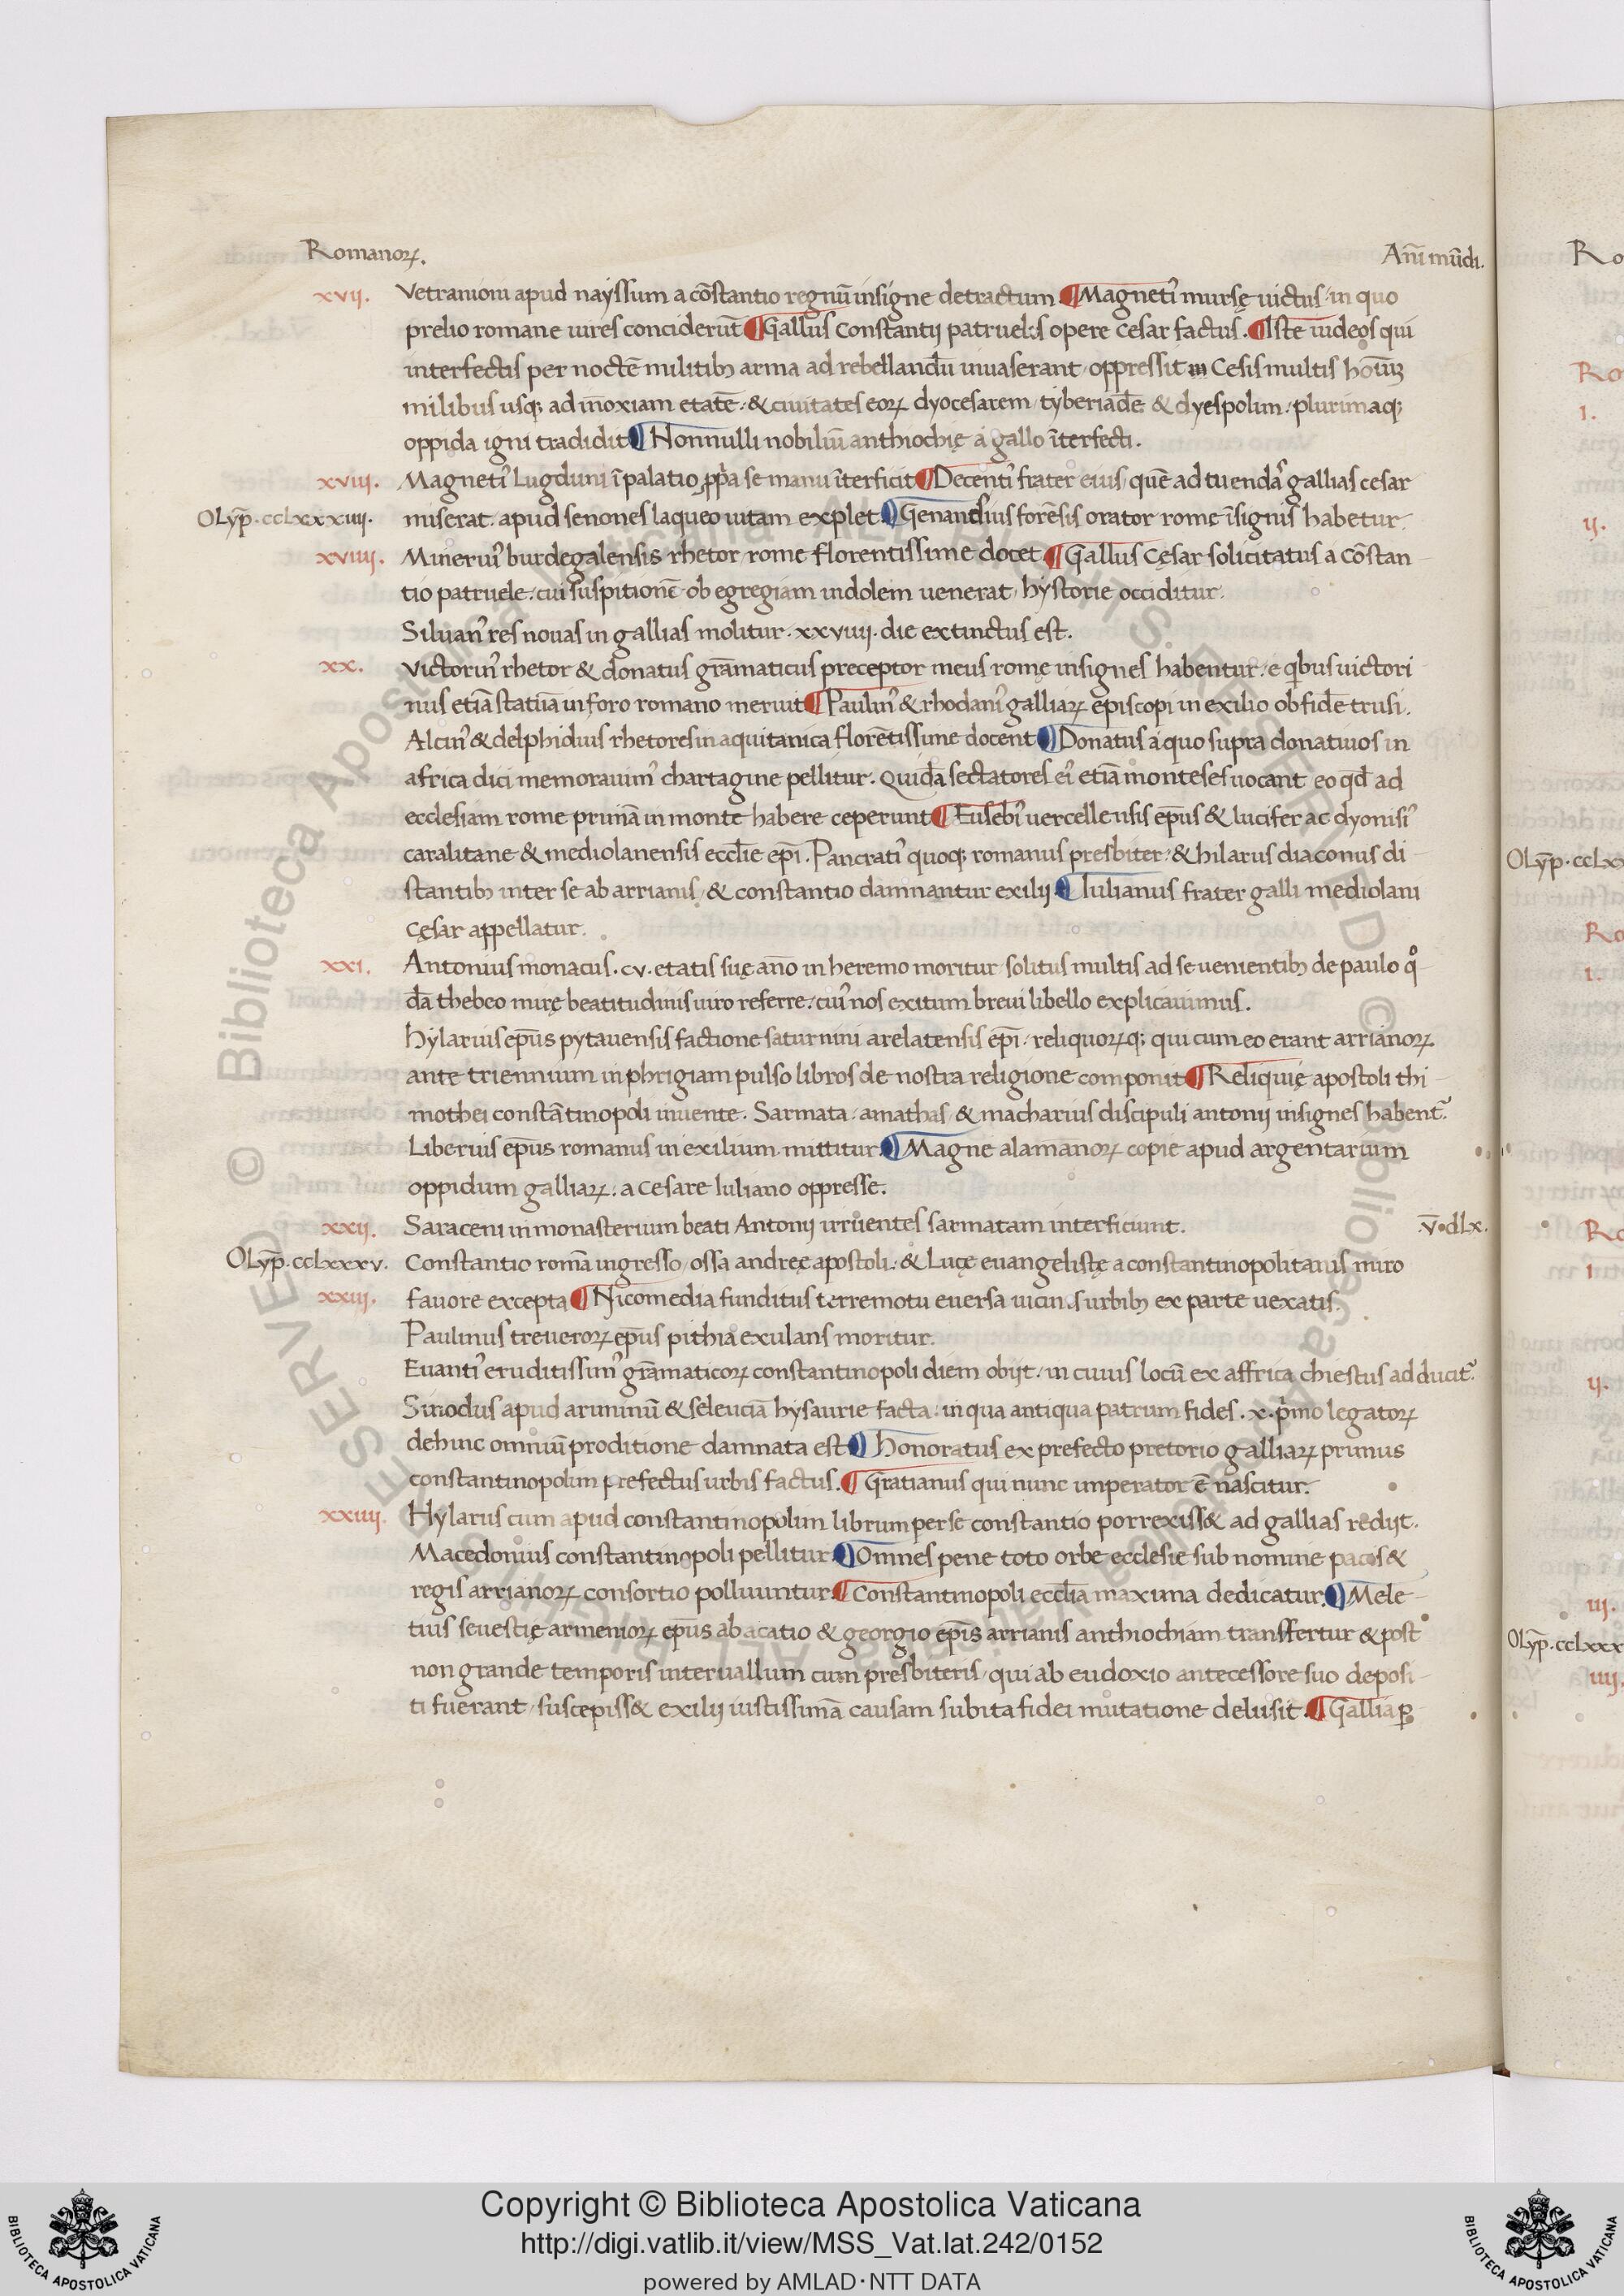 Romanoꝝ.
Anī mūdi.
xvii. Vetranioni apud nayssum a cōstantio regnū insigne detractum ¶ Magnetiꝰ mursę uictus in quo
prelio romane uires conciderūt ¶ Gallus Constantij patruelis opere cesar factus. ¶ Iste iudeos qui
interfectis per noctē militibꝫ arma ad rebellandū inuaserant oppressit Cesis multis hoīūꝫ
milibus usqꝫ ad inoxiam etatē & ciuitates eoꝝ dyocesarem tyberiadē & dyespolim plurimaqꝫ
oppida igni tradidit ¶ Nonnulli nobiliū anthiochię a gallo īterfecti.
xviii. Magnetiꝰ Lugduni ī palatio ꝓpa se manu īterficit ¶ Decentiꝰ frater eius quē ad tuendas gallias cesar
Olyp̄. cclxxxiiii. miserat apud senones laqueo uitam explet. ¶ Genandius forēsis orator rome īsignis habetur
xviiii. Mineruiꝰ burdegalensis rhetor rome florentissime docet ¶ Gallus Cęsar solicitatus a cōstan
tio patruele cui suspitionē ob egregiam indolem uenerat hystorie occiditur.
Siluanꝰ res nouas in gallias molitur. xxviiij. die extinctus est.
xx. Victorinꝰ rhetor & donatus grāmaticus preceptor meus romę insignes habentur e qibus uictori
nus etiā statuā in foro romano meruit ¶ Paulinꝰ & rhodaniꝰ galliaꝝ episcopi in exilio ob fidē trusi.
Alcinꝰ & delphidius rhetores in aquitanica florētissime docent ¶ Donatus a quo supra donatiuos in
africa dici memorauimꝰ chartagine pellitur. Quidā sectatores eiꝰ etiā monteses uocant eo qđ ad
ecclesiam rome primā in monte habere ceperunt ¶ Eusebiꝰ uercellensis ep̄us & lucifer ac dyonisiꝰ
caralitane & mediolanensis eccl̄ie ep̄i. Pancratiꝰ quoqꝫ romanus presbiter & hilarus diaconus di
stantibꝫ inter se ab arrianis & constantio damnantur exilij ¶ Iulianus frater galli mediolani
Cęsar appellatur.
xxi. Antonius monacus. cv. etatis suę an̄o in heremo moritur solitus multis ad se uenientibꝫ de paulo qͦ
dā thebeo mirę beatitudinis uiro referre cuiꝰ nos exitum breui libello explicauimus.
Hylarius ep̄us pytauensis factione saturnini arelatensis ep̄i reliquoꝝqꝫ qui cum eo erant arrianoꝝ
ante triennium in phrigiam pulso libros de nostra religione componit ¶ Reliquię apostoli thi
mothei constātinopoli inuente. Sarmata amathas & macharius discipuli antonij insignes habent̄.
Liberius ep̄us romanus in exilium mittitur ¶ Magne alamanoꝝ copie apud argentarium
oppidum galliaꝝ a cesare Iuliano oppresse.
xxii. Saraceni in monasterium beati Antonij irruentes sarmatam interficiunt. v̄.dlx.
Olyp̄. cclxxxv. Constantio romā ingresso ossa andreę apostoli & Lucę euangelistę a constantinopolitanis miro
xxiii. fauore excepta ¶ Nicomedia funditus terremotu euersa uicinis urbibꝫ ex parte uexatis.
Paulinus treueroꝝ ep̄us pithia exulans moritur.
Euantiꝰ eruditissimꝰ grāmaticoꝝ constantinopoli diem obijt in cuius locū ex affrica chiestus adducit̄.
Sinodus apud ariminū & seleuciā hysaurie facta in qua antiqua patrum fides. x. primo legatoꝝ
dehinc omniū proditione damnata est ¶ honoratus ex prefecto pretorio galliaꝝ primus
constantinopolim prefectus urbis factus. ¶ Gratianus qui nunc imperator ē nascitur.
xxiiii. Hylarus cum apud constantinopolim librum per se constantio porrexiss& ad gallias redijt.
Macedonius constantinopoli pellitur. ¶ Omnes pene toto orbe ecclesie sub nomine pacis &
regis arrianoꝝ consortio polluuntur. ¶ Constantinopoli eccl̄ia maxima dedicatur. ¶ Mele
tius seuestię armenioꝝ ep̄us ab acatio & georgio ep̄is arrianis anthiochiam transfertur & post
non grande temporis interuallum cum presbiteris qui ab eudoxio antecessore suo deposi
ti fuerant suscepiss& exilij iustissimā causam subita fidei mutatione delusit. ¶ Gallia ꝑ
Copyright © Biblioteca Apostolica Vaticana
http://digi.vatlib.it/view/MSS_Vat.lat.242/0152
powered by AMLAD·NTT DATA
BIBLIOTECA APOSTOLICA VATICANA
BIBLIOTECA APOSTOLICA VATICANA